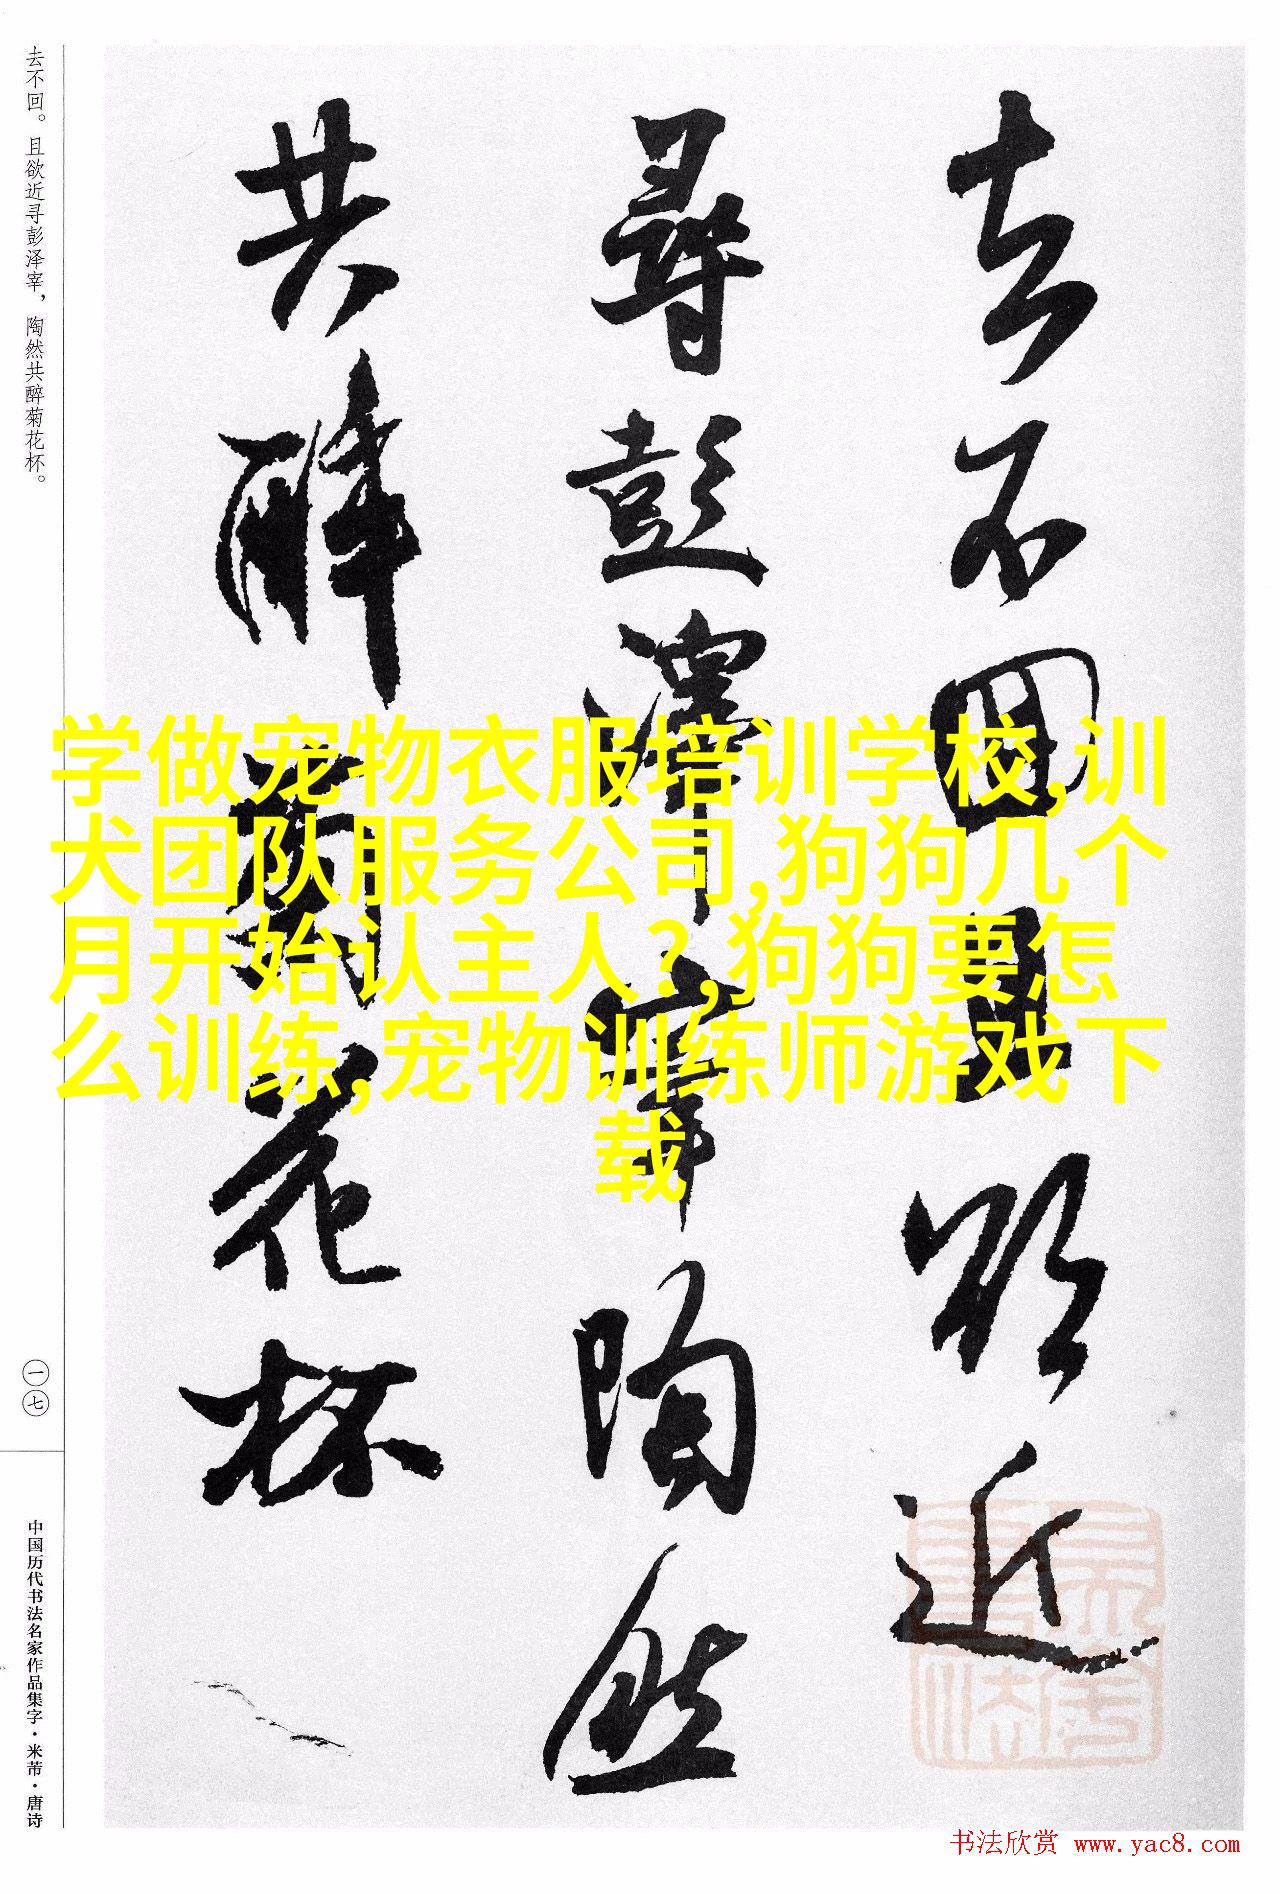 去不回且欲近
尋彭澤宰陶然
共醉菊花杯
去不回。且欲近寻彭泽宰，陶然共醉菊花杯。
一七
中国历代书法名家作品集字·米芾·唐诗
学做宠物衣服培训学校,训
犬团队服务公司,狗狗几个
月开始认主人?,狗狗要怎
么训练,宠物训练师游戏下
载
书法欣赏 www.yac8.com